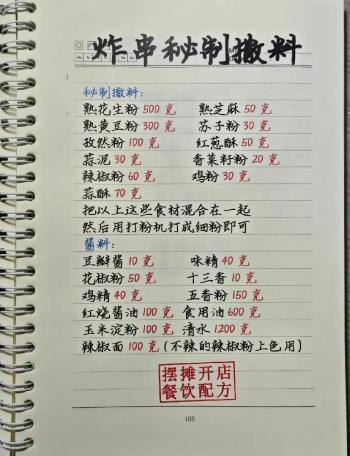 炸串秘制撒料
秘制撒料:
熟花生粉500克 熟芝麻50克
熟黄豆粉300克 苏子粉30克
孜然粉100克 红葱酥50克
蒜泥30克 香菜籽粉20克
辣椒粉60克 鸡粉30克
蒜酥70克
把以上这些食材混合在一起
然后用打粉机打成细粉即可
酱料:
豆瓣酱10克 味精40克
花椒粉50克 十三香10克
鸡精40克 五香粉150克
红烧酱油100克 食用油600克
玉米淀粉100克 清水1200克
辣椒面100克(不辣的辣椒粉上色用)
摆摊开店
餐饮配方
105